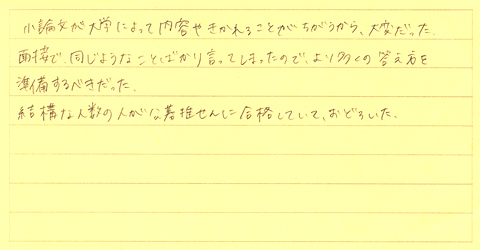 小論文が大学によって内容やきかれることがちがうから、大変だった.
面接で.同じようなことばかり言ってしまったので、より多くの答え方を
準備するべきだった.
結構な人数の人が公募推せんに合格していて、おどろいた.